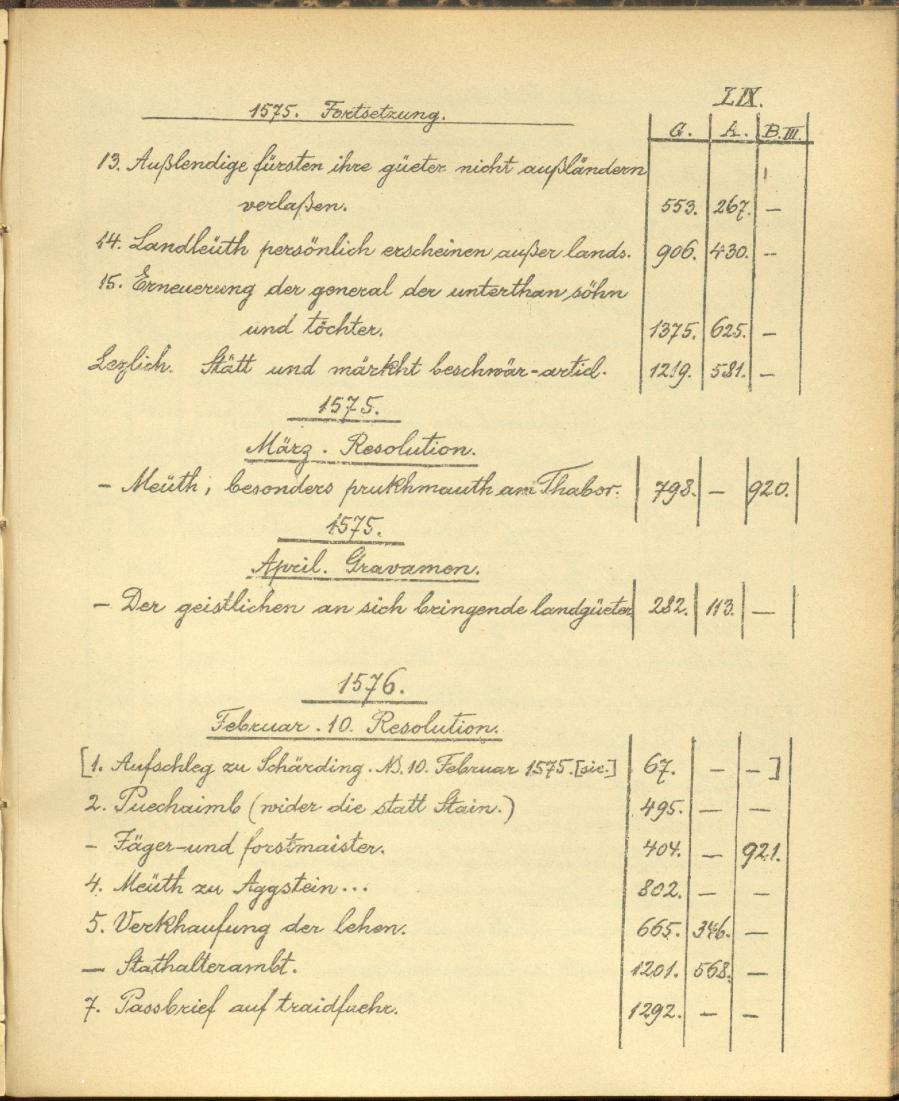 LIX.
1575. Fortsetzung.
G. A. B.III.
13. Außlendige fürsten ihre güeter nicht außländern
verlaßen. 553. 267. –
14. Landleüth persönlich erscheinen außer lands. 906. 430. –
15. Erneuerung der general der unterthan söhn
und töchter. 1375. 625. –
Lezlich. Stätt und märkht beschwär-articl. 1219. 581. –
1575.
März. Resolution.
– Meüth, besonders prukhmauth am Thabor. 798. – 920.
1575.
April. Gravamen.
– Der geistlichen an sich bringende landgüeter 282. 113. –
1576.
Februar. 10. Resolution.
[1. Aufschleg zu Schärding. NB. 10. Februar 1575. [sic.] 67. – – ]
2. Puechaimb (wider die statt Stain.) 495. – –
– Jäger- und forstmaister. 404. – 921.
4. Meüth zu Aggstein... 802. – –
5. Verkhaufung der lehen. 665. 346. –
– Stathalterambt. 1201. 568. –
7. Passbrief auf traidfuehr. 1292. – –